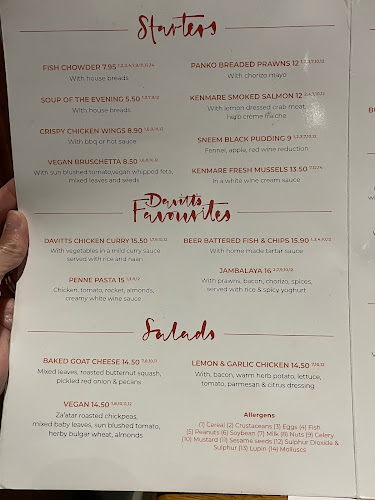 Starters
FISH CHOWDER 7.95
With house breads
SOUP OF THE EVENING 5.50
With house breads
CRISPY CHICKEN WINGS 8.90
With bbq or hot sauce
VEGAN BRUSCHETTA 8.50
With sun blushed tomato,vegan whipped feta,
mixed leaves and seeds
PANKO BREADED PRAWNS 12
With chorizo mayo
KENMARE SMOKED SALMON 12
With lemon dressed crab meat,
herb crème fraîche
SNEEM BLACK PUDDING 9
Fennel, apple, red wine reduction
KENMARE FRESH MUSSELS 13.50
In a white wine cream sauce
Davitts
Favourites
DAVITTS CHICKEN CURRY 15.50
With vegetables in a mild curry sauce
served with rice and naan
PENNE PASTA 15
Chicken, tomato, rocket, almonds,
creamy white wine sauce
BEER BATTERED FISH & CHIPS 15.90
With home made tartar sauce
JAMBALAYA 16
With prawns, bacon, chorizo, spices,
served with rice & spicy yoghurt
Salads
BAKED GOAT CHEESE 14.50
Mixed leaves, roasted butternut squash,
pickled red onion & pecans
VEGAN 14.50
Za'atar roasted chickpeas,
mixed baby leaves, sun blushed tomato,
herby bulgar wheat, almonds
LEMON & GARLIC CHICKEN 14.50
With, bacon, warm herb potato, lettuce,
tomato, parmesan & citrus dressing
Allergens
(1) Cereal (2) Crustaceans (3) Eggs (4) Fish
(5) Peanuts (6) Soybean (7) Milk (8) Nuts (9) Celery
(10) Mustard (11) Sesame seeds (12) Sulphur Dioxide &
Sulphur (13) Lupin (14) Molluscs